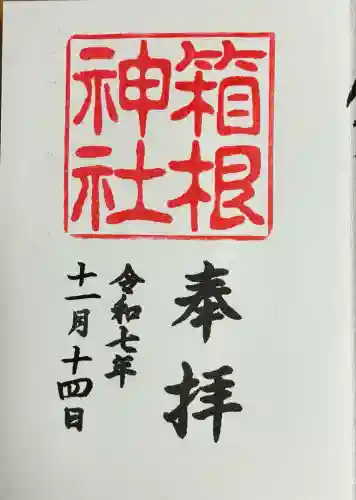 箱根
神社
奉拝
令和七年
十一月十四日